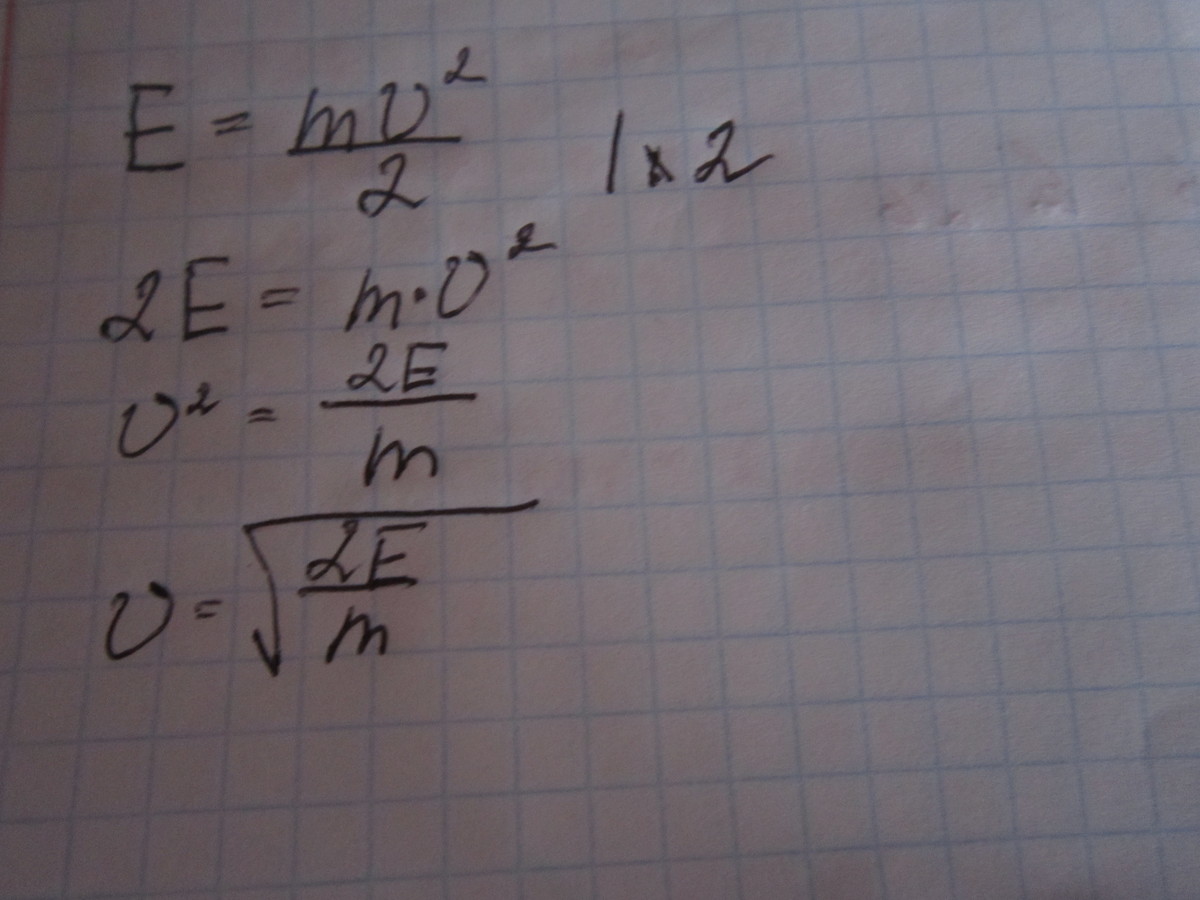 E = mv²/2 | x 2
2E = m·v²
v² = 2E/m
v = √(2E/m)